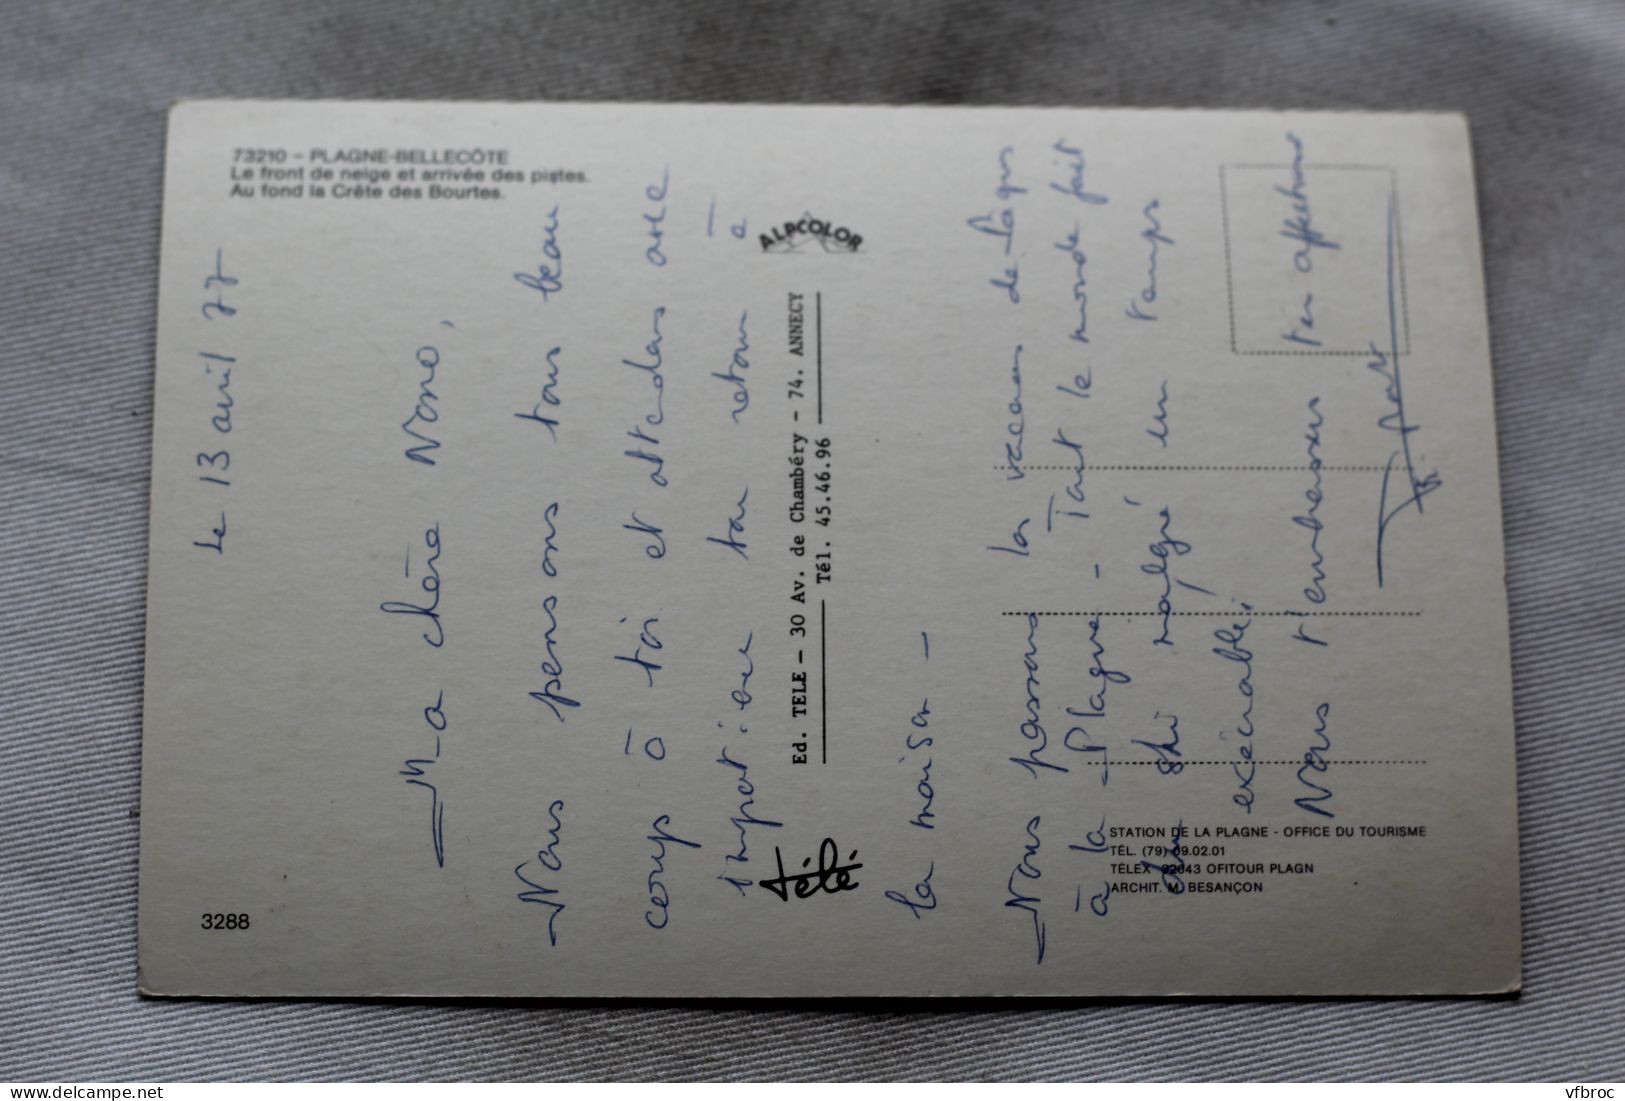 73210 - PLAGNE-BELLECÔTE
Le front de neige et arrivée des pistes.
Au fond la Crête des Bourtes.
le 13 avril 77
Ma chère Nono,
Nous pensons tous beau
coup à toi et attendons avec
impatience ton retour à
la maison -
Nous passons les vacances de Pâques
à la Plagne - Tout le monde fait
du ski malgré un temps
exécrable.
Nous t'embrassons très affectueus
ALPCOLOR
Ed. TELE - 30 Av. de Chambéry - 74. ANNECY
Tél. 45.46.96
télé
STATION DE LA PLAGNE - OFFICE DU TOURISME
TÉL. (79) 09.02.01
TÉLEX 32043 OFITOUR PLAGN
ARCHIT. M. BESANÇON
3288
vfbroc